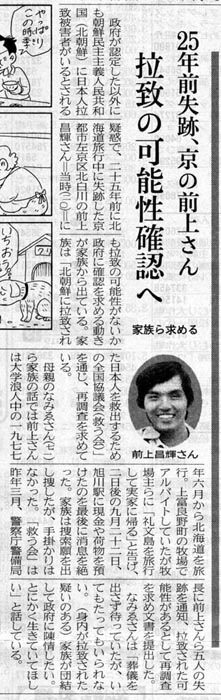 25年前失跡 京の前上さん
拉致の可能性確認へ
家族ら求める
政府が認定した以外に
も朝鮮民主主義人民共和
国（北朝鮮）に日本人拉
致被害者がいるとされる
疑惑で、二十五年前に北
海道旅行中に失跡した京
都市左京区北白川の前上
昌輝さん＝当時（二〇）＝に
も拉致の可能性がないか
政府に確認を求める動き
が家族から出ている。家
族は「北朝鮮に拉致され
た日本人を救出するため
の全国協議会（救う会）」
を通じ、再調査を求めて
いる。
母親のなみゑさん
ら家族の話では前上さん
は大学浪人中の一九七七
年六月から北海道を旅
行。上富良野町の牧場で
アルバイトしていたが牧
場主らに「礼文島を旅行
して実家に帰る」と告げ、
二日後の九月二十二日、
旭川駅に現金や荷物を預
けたのを最後に消息を絶
った。家族は捜索願を出
し捜したが、手掛かりは
なかった。「救う会」は
昨年三月、警察庁警備局
長に前上さんら五人の失
跡を通知、拉致された可
能性があるとして再調査
を求め文書を提出した。
なみゑさんは「葬儀を
出さず待っていたが、い
てもたってもいられな
い。（身内が拉致された
疑いのある）家族が団結
して政府に陳情したい。
とにかく生きていてほし
い」と話している。
前上昌輝さん
やっぱり
この時
いちおう